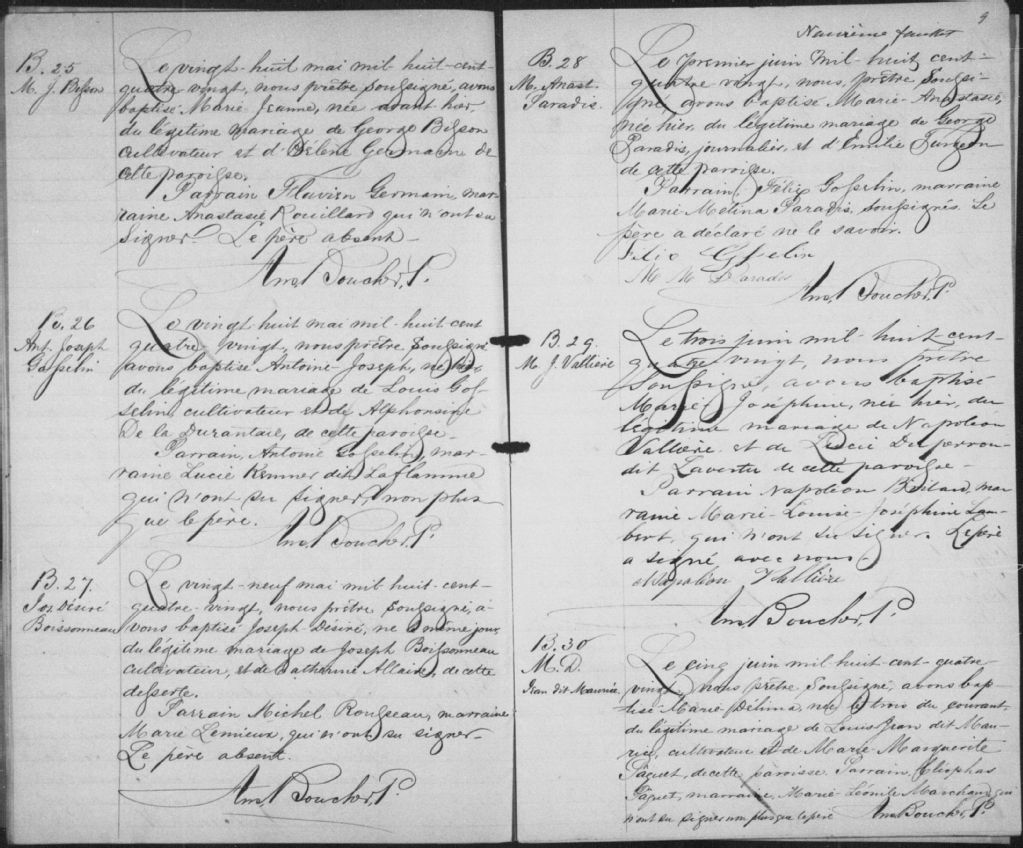 B. 25
M. J. Bisson
Le vingt-huit mai mil-huit-cent-
quatre vingt, nous prêtre soussigné, avons
baptisé Marie Jeanne, née avant hier,
du légitime mariage de George Bisson
cultivateur et d'Hélène Germain de
cette paroisse.
Parrain Flavien Germain, mar-
raine Anastasie Rouillard qui n'ont su
signer. Le père absent-
Am. Boucher, P.
B. 26
Ant. Joseph
Gosselin
Le vingt huit mai mil-huit cent
quatre-vingt, nous prêtre soussigné
avons baptisé Antoine-Joseph, né
du légitime mariage de Louis Gos-
selin, cultivateur et de Alphonsine
De la Durantaie, de cette paroisse-
Parrain, Antoine Gosselin, mar-
raine Lucie Kemner dit Laflamme
qui n'ont su signer, non plus
que le père.
Am. Boucher, P.
B. 27.
Jos. Désiré
Boissonneau
Le vingt-neuf mai mil huit-cent-
quatre-vingt, nous prêtre soussigné, a-
vons baptisé Joseph-Désiré, né le même jour,
du légitime mariage de Joseph Boissonneau
cultivateur, et de Catherine Allaire, de cette
desserte.
Parrain Michel Rousseau, marraine
Marie Lemieux, qui n'ont su signer-
Le père absent.
Am. Boucher, P.
9
Neuvième feuillet
B. 28
M. Anast.
Paradis.
Le premier juin mil-huit cent-
quatre vingt, nous, prêtre soussi-
gné avons baptisé Marie-Anastasie,
née hier, du légitime mariage de George
Paradis, journalier, et d'Emilie Turgeon
de cette paroisse.
Parrain, Félix Gosselin, marraine
Marie-Melina Paradis, soussignés. Le
père a déclaré ne le savoir.
Félix Gosselin
M M Paradis
Am. Boucher, P.
B. 29.
M. J. Vallière
Le trois juin mil-huit cent-
quatre vingt, nous prêtre
soussigné, avons baptisé
Marie Joséphine, née hier, du
légitime mariage de Napoléon
Vallière et de Lucie Duperron
dit Lavertu de cette paroisse-
Parrain Napoléon Bilard, mar
raine Marie-Louise-Joséphine Lam
bert, qui n'ont su signer. Le père
a signé avec nous
Napoléon Vallière
Am. Boucher, P.
B. 30
M. D.
Jean dit Maurice
Le cinq juin mil huit cent-quatre-
vingt, nous prêtre soussigné, avons bap-
tisé Marie-Délima, née le trois du courant
du légitime mariage de Louis Jean dit Mau-
rice, cultivateur et de Marie-Marguerite
Paquet, de cette paroisse. Parrain, Cléophas
Paquet, marraine, Marie-Léonile Marchand, qui
n'ont su signer non plus que le père Am. Boucher, P.